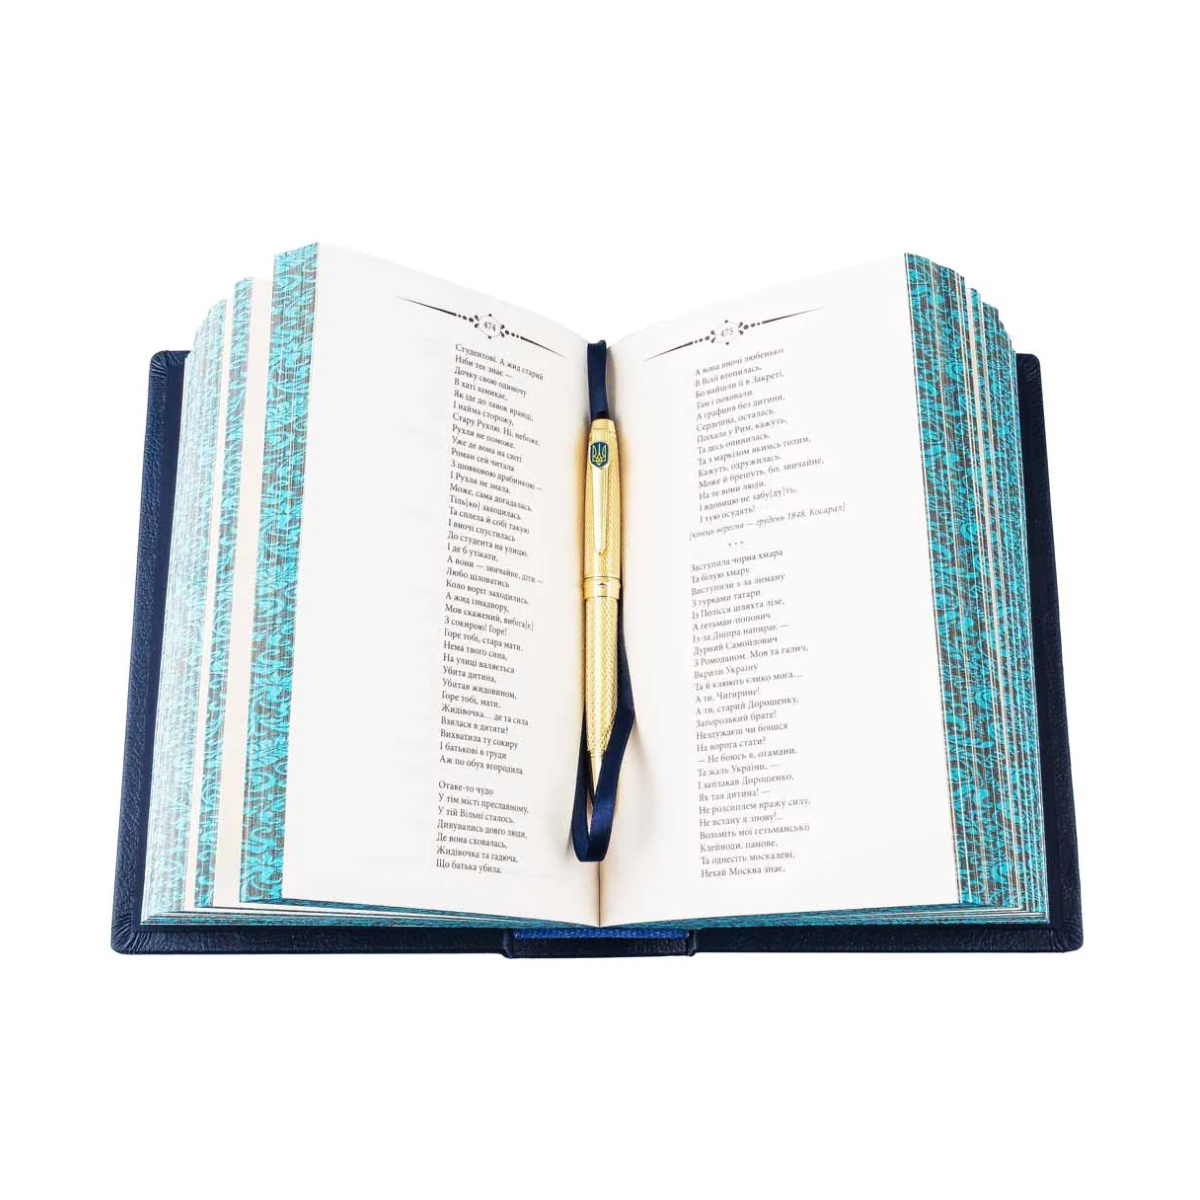 474
Студентові. А жид старий
Ніби теє знає —
Дочку свою одиночу
В хаті замикає,
Як іде до лавок вранці,
І найма сторожу,
Стару Рухлю. Ні, небоже,
Рухля не поможе.
Уже де вона на світі
Роман сей читала
З шовковою драбинкою —
І Рухля не знала.
Може, сама догадалась.
Тіль[ко] заходилась
Та сплела й собі такую
І вночі спустилась
До студента на улицю.
І де б утікати,
А вони — звичайне, діти —
Любо цілуватись
Коло воріт заходились.
А жид ізнадвору,
Мов скажений, вибіга[є]
З сокирою! Горе!
Горе тобі, стара мати.
Нема твого сина,
На улиці валяється
Убита дитина,
Убитая жидовином,
Горе тобі, мати.
Жидівочка... де та сила
Взялася в дитяти?
Вихватила ту сокиру
І батькові в груди
Аж по обух вгородила.
Отаке-то чудо
У тім місті преславному,
У тій Вільні сталось.
Дивувались довго люди,
Де вона сховалась,
Жидівочка та гадюча,
Що батька убила.
475
А вона вночі любенько
В Вілії втопилась,
Бо найшли її в Закреті,
Там і поховали.
А графиня без дитини,
Сердешна, осталась.
Поїхала у Рим, кажуть,
Та десь опинилась,
Та з маркізом якимсь голим,
Кажуть, одружилась.
Може й брешуть, бо, звичайне,
На те вони люди,
І вдовицю не забу[ду]ть,
І тую осудять!
[кінець вересня — грудень 1848, Косарал]
* * *
Заступила чорна хмара
Та білую хмару.
Виступили з-за лиману
З турками татари.
Із Полісся шляхта лізе,
А гетьман-попович
Із-за Дніпра напирає —
Дурний Самойлович
З Ромоданом. Мов та галич,
Вкрили Україну
Та й клюють єлико мога...
А ти, Чигирине!
А ти, старий Дорошенку,
Запорозький брате!
Нездужаєш чи боїшся
На ворога стати?
— Не боюсь я, отамани,
Та жаль України, —
І заплакав Дорошенко,
Як тая дитина! —
Не розсиплем вражу силу,
Не встану я знову!..
Возьміть мої гетьманські
Клейноди, панове,
Та однесіть москалеві,
Нехай Москва знає,